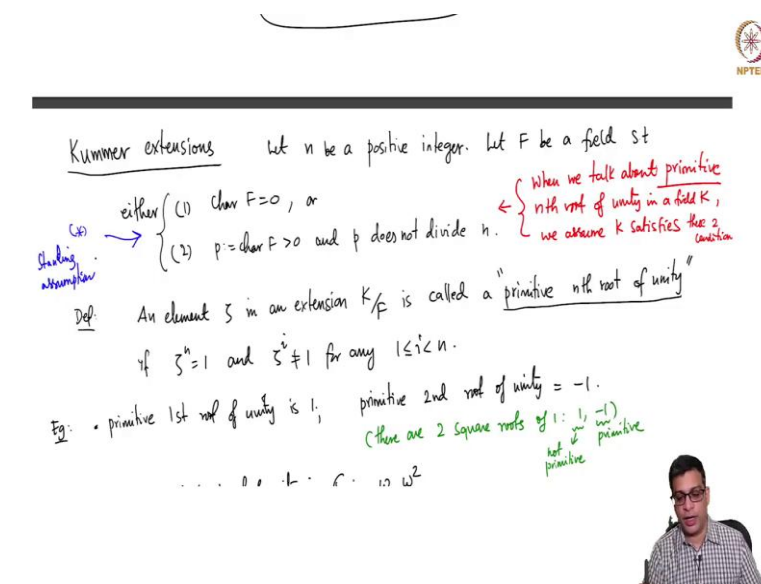 NPTEL
Kummer extensions Let n be a positive integer. Let F be a field st
either { (1) char F=0, or
(2) p:=char F >0 and p does not divide n.
← { When we talk about primitive
nth root of unity in a field K,
we assume K satisfies these 2
condition
(*)
Standing
assumption
Def: An element ζ in an extension K/F is called a "primitive nth root of unity"
if ζⁿ=1 and ζⁱ≠1 for any 1≤i<n.
Eg: • primitive 1st root of unity is 1; primitive 2nd root of unity = -1.
(there are 2 square roots of 1: 1, -1)
not primitive
primitive
ω²